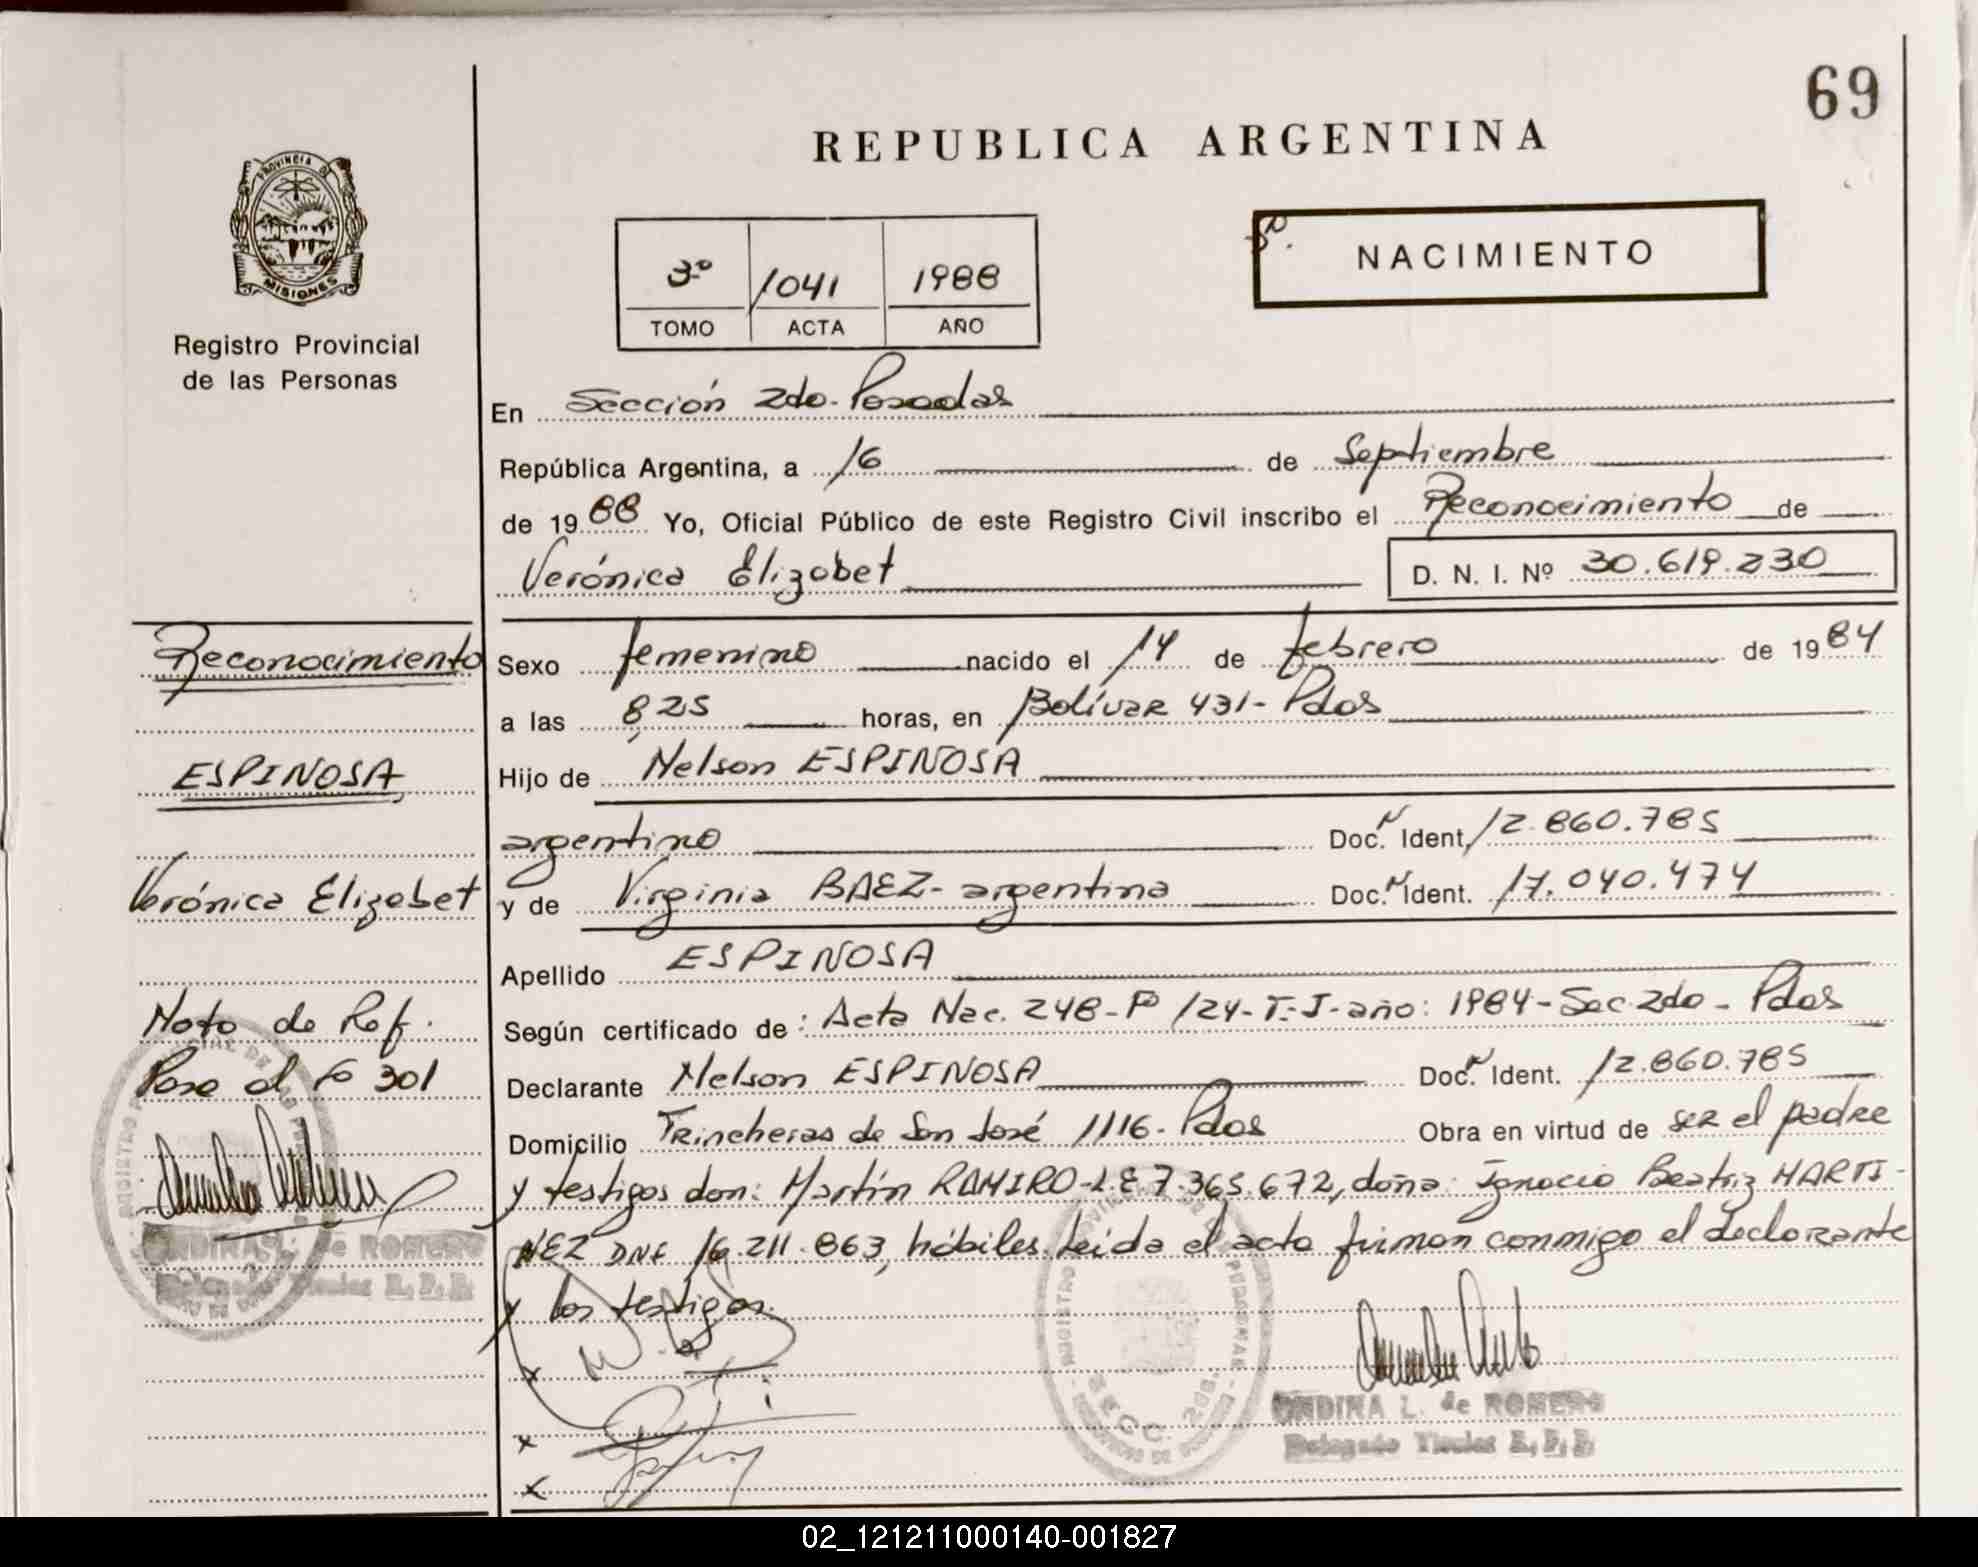 69
REPUBLICA ARGENTINA
PROVINCIA DE
MISIONES
Registro Provincial
de las Personas
3º 1041 1988
TOMO ACTA AÑO
NACIMIENTO
En Sección 2da. Posadas
República Argentina, a 16 de Septiembre
de 1988 Yo, Oficial Público de este Registro Civil inscribo el Reconocimiento de
Verónica Elizabet D. N. I. Nº 30.619.230
Reconocimiento
ESPINOSA
Verónica Elizabet
Nota de Ref.
Pasa al Fº 301
ONDINA L. de ROMERO
Delegado Titular R. P. P.
Sexo femenino nacido el 14 de febrero de 1984
a las 8,25 horas, en Bolívar 431- Pdas
Hijo de Nelson ESPINOSA
argentino Doc. Ident. 12.860.785
y de Virginia BAEZ- argentina Doc. Ident. 17.040.474
Apellido ESPINOSA
Según certificado de: Acta Nac. 248-Fº 124-T.I-año: 1984-Sec 2da - Pdas
Declarante Nelson ESPINOSA Doc. Ident. 12.860.785
Domicilio Trincheras de San José 1116- Pdas Obra en virtud de ser el padre
y testigos don: Martín RAMIRO-L.E 7.365.672, doña: Ignacia Beatriz MARTI-
NEZ DNI 16.211.863, hábiles. Leída el acta firman conmigo el declarante
y los testigos.
x
x
x
SECC. 2DA.
ONDINA L. de ROMERO
Delegado Titular R. P. P.
02_121211000140-001827